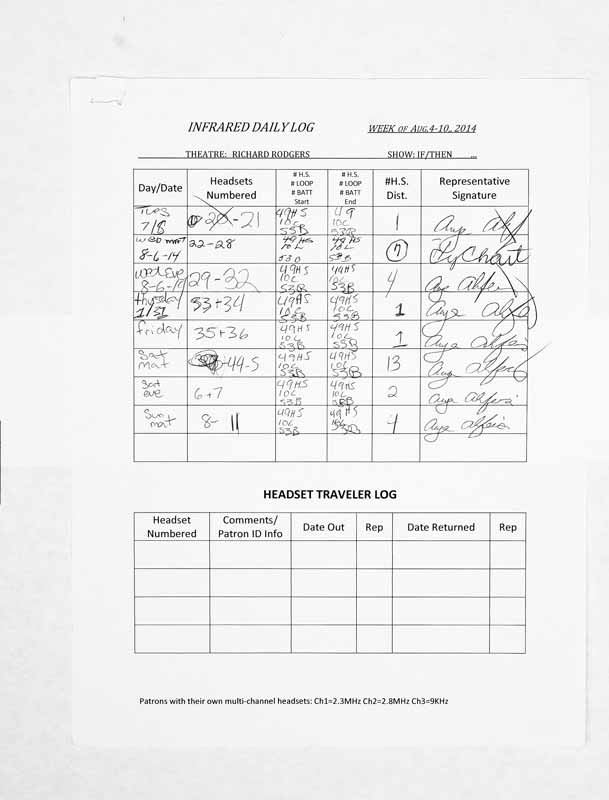 INFRARED DAILY LOG WEEK OF AUG.4-10, 2014
THEATRE: RICHARD RODGERS SHOW: IF/THEN
Day/Date Headsets Numbered # H.S. # LOOP # BATT Start # H.S. # LOOP # BATT End #H.S. Dist. Representative Signature
Tues 7/8 -21 49HS 10C 53B 49 10C 53B 1
Wed mat 8-6-14 22-28 49HS 10C 49HS 10C 7 Ty Chart
Wed Eve 29-32 49HS 10C 53B 49HS 10C 53B 4
Thursday 33+34 49HS 10C 53B 49HS 10C 53B 1
friday 35+36 49HS 10C 53B 49HS 10C 53B 1
Sat mat +44-5 49HS 10C 53B 49HS 10C 53B 13
Sat eve 6+7 49HS 10C 53B 49HS 10C 53B 2
Sun mat 8-11 49HS 10C 53B 49HS 10C 4
HEADSET TRAVELER LOG
Headset Numbered Comments/ Patron ID Info Date Out Rep Date Returned Rep
Patrons with their own multi-channel headsets: Ch1=2.3MHz Ch2=2.8MHz Ch3=9KHz